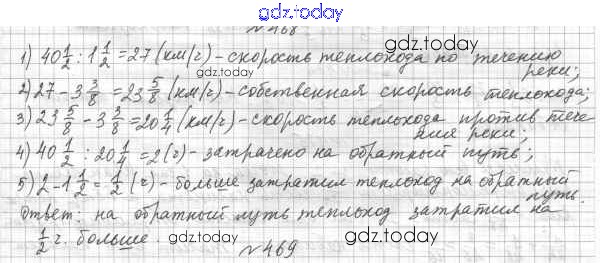 gdz.today
№468
gdz.today
1) 40 1/2 : 1 1/2 = 27 (км/ч) - скорость теплохода по течению
реки;
gdz.today
2) 27 - 3 3/8 = 23 5/8 (км/ч) - собственная скорость теплохода;
3) 23 5/8 - 3 3/8 = 20 1/4 (км/ч) - скорость теплохода против тече-
ния реки;
gdz.today
4) 40 1/2 : 20 1/4 = 2 (ч) - затрачено на обратный путь;
gdz.today
5) 2 - 1 1/2 = 1/2 (ч) - больше затратил теплоход на обратный
путь.
Ответ: на обратный путь теплоход затратил на
1/2 ч. больше.
gdz.today
gdz.today
№469